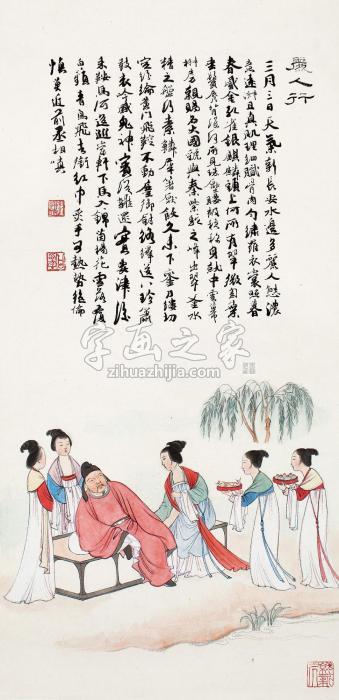 麗人行
三月三日天氣新長安水邊多麗人態濃
意遠淑且真肌理細膩骨肉勻繡羅衣裳照暮
春蹙金孔雀銀麒麟頭上何所有翠微㔩葉
垂鬢唇背後何所見珠壓腰衱穩稱身就中雲幕
椒房親賜名大國虢與秦紫駝之峰出翠釜水
精之盤行素鱗犀箸厭飫久未下鸞刀縷切
空紛綸黃門飛鞚不動塵御廚絡繹送八珍簫
鼓哀吟感鬼神賓從雜遝實要津後
來鞍馬何逡巡當軒下馬入錦茵楊花雪落覆
白蘋青鳥飛去銜紅巾炙手可熱勢絕倫
慎莫近前丞相嗔
字画之家
zihuazhijia.com